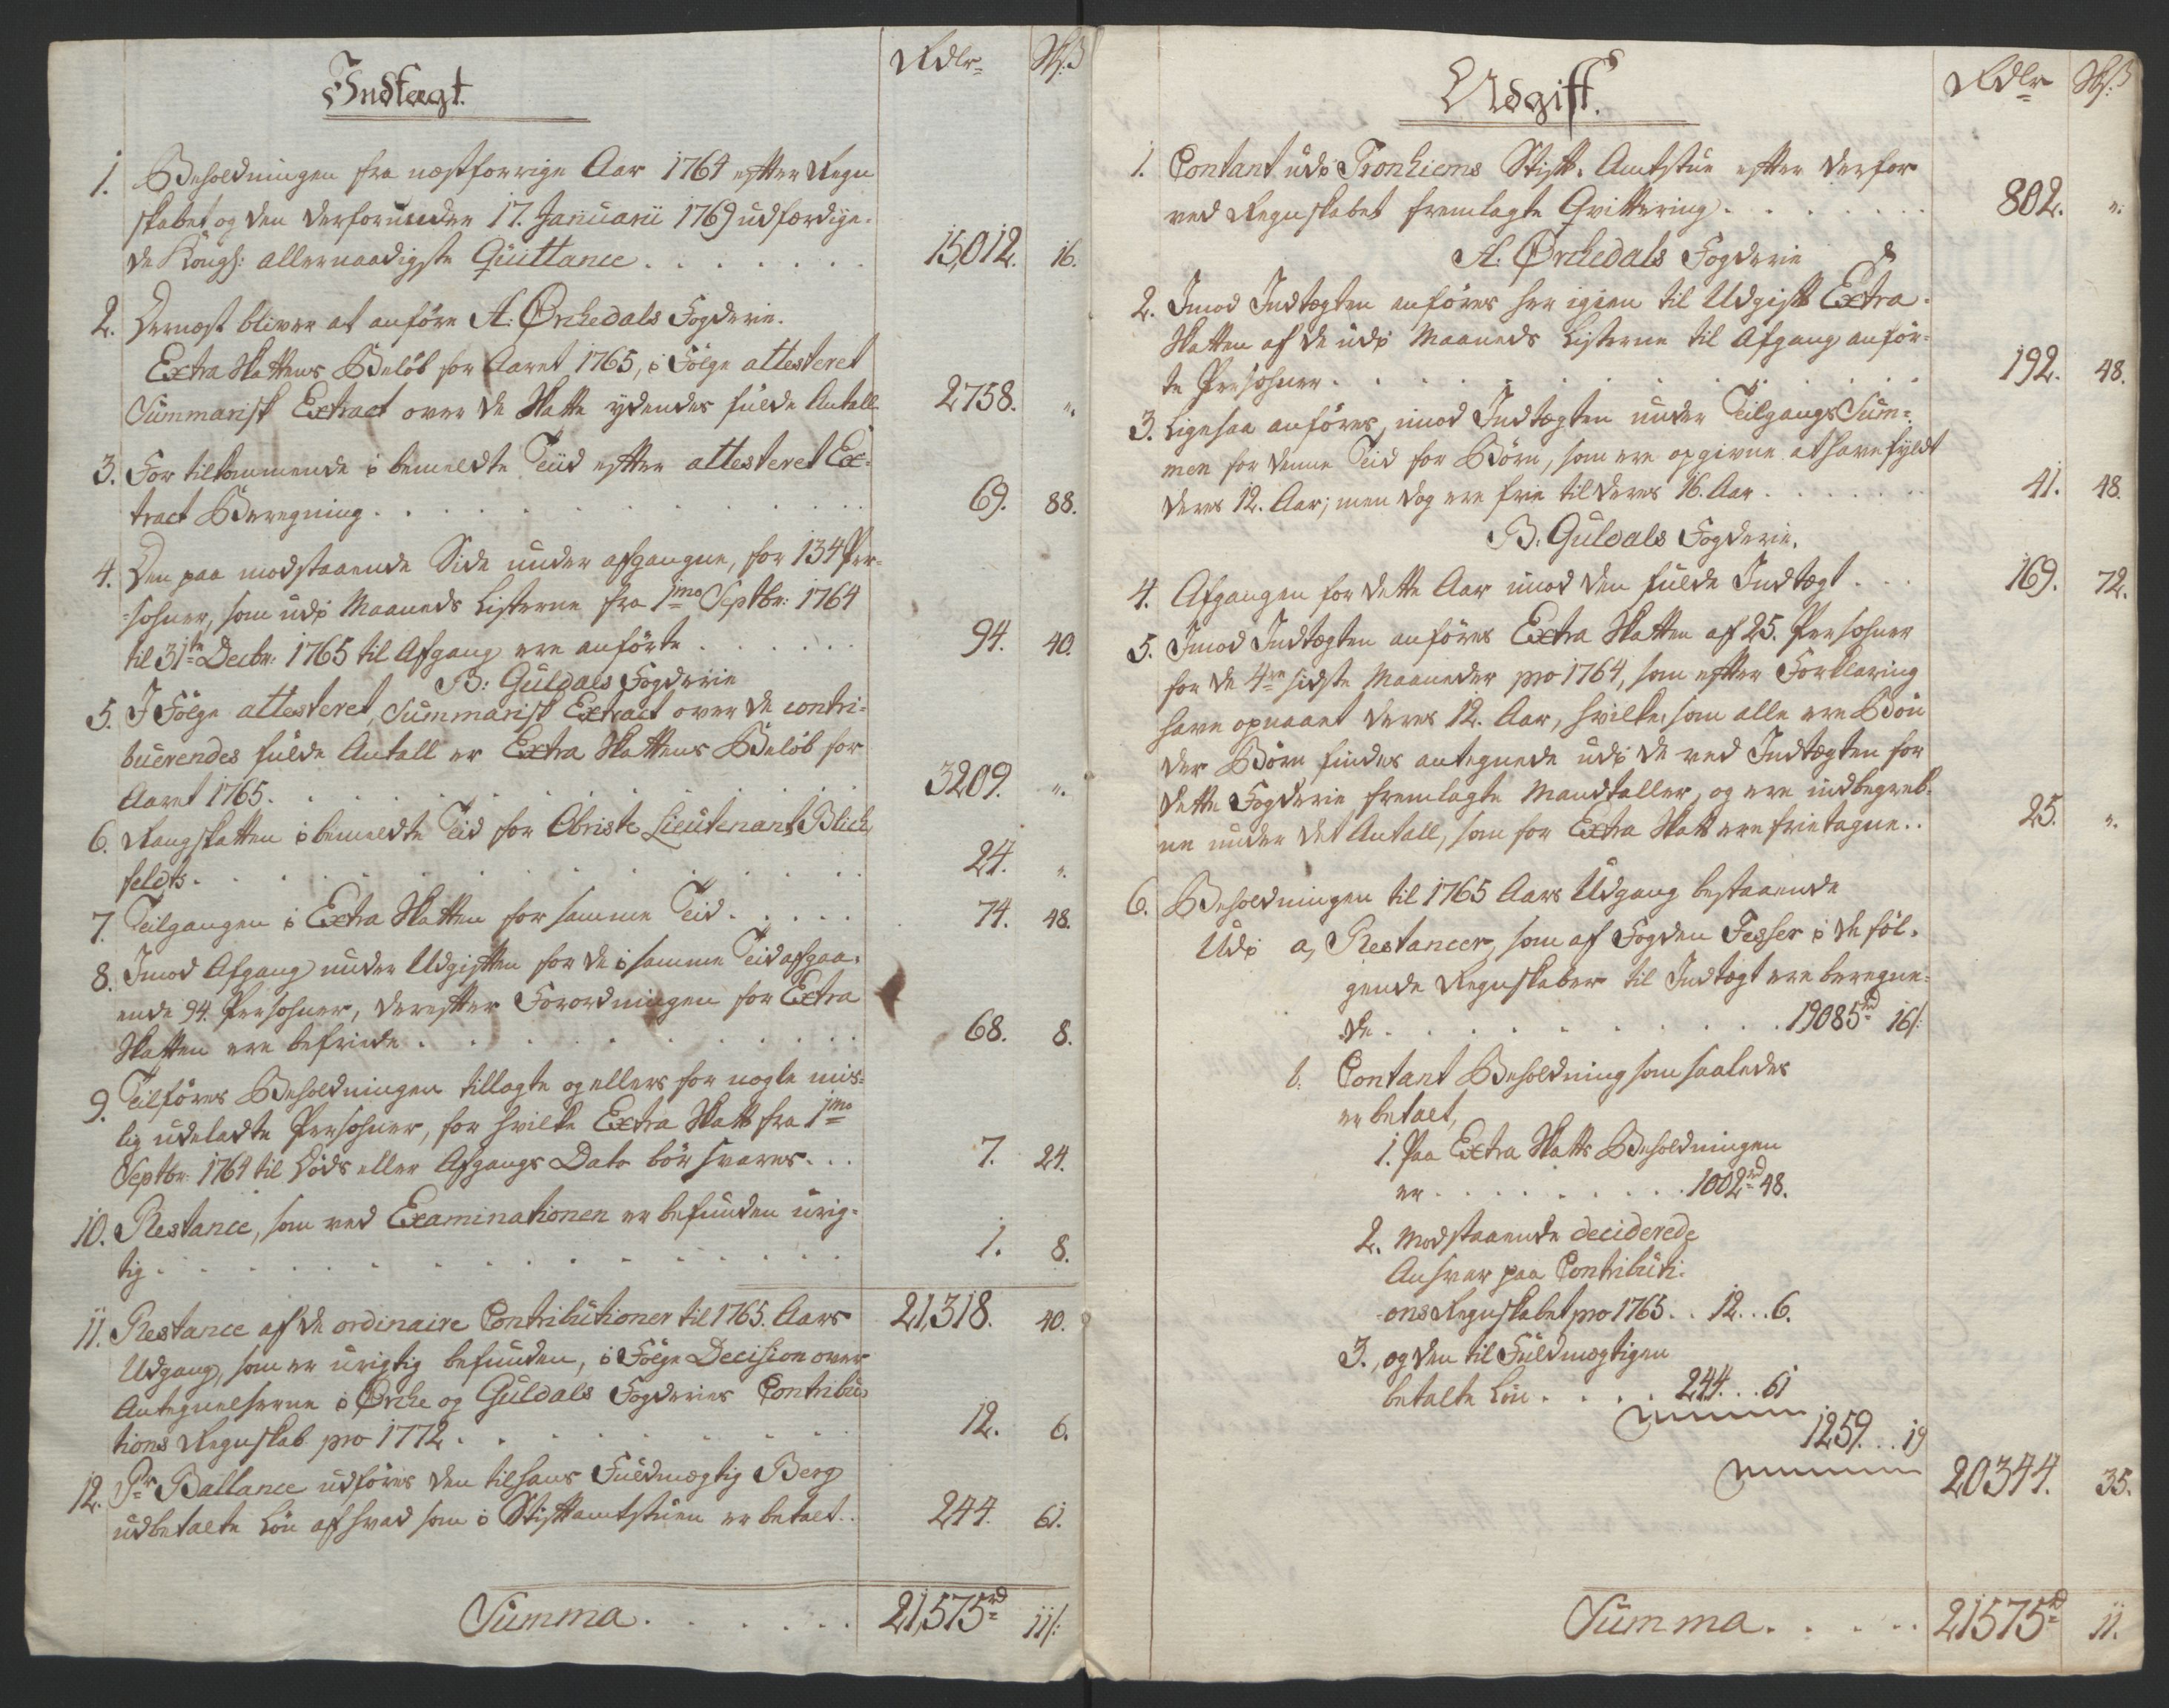 Indtægt.
Rdlr
Sk: ß
1. Beholdningen fra næstforrige Aar 1764 efter Regn
skabet og den derfor under 17. Januarii 1769 udfærdige-
de Kongl: allernaadigste Quittance . . . . . . . 15,012. 16.
2. Dernæst bliver at anføre A: Örckedals Fogderie.
Extra Skattens Beløb for Aaret 1765, i Følge attesteret
Summarisk Extract over de Skatte ydendes fulde Antall 2758. ".
3. For tilkommende i bemeldte Tiid efter attesteret Ex-
tract Beregning . . . . . . . . . . 69. 88.
4. Den paa modstaaende Side under afgangne, for 134 Per-
-sohner, som udi Maaneds Listerne fra 1mo Septbr: 1764
til 31te Decbr: 1765 til Afgang ere anførte . . . . . . 94. 40.
B: Guldals Fogderie
5. I Følge attesteret, Summarisk Extract over de contri-
buerendes fulde Antall er Extra Skattens Beløb for
Aaret 1765 . . . . . . . . . . 3209. ".
6. Rangskatten i bemeldte Tid for Obriste Lieutenant Blich
feldts . . . . . . . . . . 24. ".
7. Tilgangen i Extra Skatten for samme Tid . . . . . 74. 48.
8. Imod Afgang under Udgiften for de i samme Tid afgaa-
ende 94. Persohner, derefter Forordningen for Extra
Skatten ere befriede . . . . . . . . . 68. 8.
9. Tilføres Beholdningen tillagte og ellers for nogle mis-
lig udeladte Persohner, for hvilke Extra Skatt fra 1mo
Septbr: 1764 til Døds eller Afgangs Dato bör svares . . . 7. 24.
10. Restance, som ved Examinationen er befunden urig-
tig . . . . . . . . . . 1. 8.
21,318. 40.
11. Restance af de ordinaire Contributioner til 1765. Aars
Udgang, som er urigtig befunden, i Følge Decision over
Antegnelserne i Örcke og Guldals Fogderies Contribu-
tions Regnskab pro 1772 . . . . . . . . 12. 6.
12. Pr Ballance udføres den til hans Fuldmægtig Berg
udbetalte Løn af hvad som i Stiftamtstuen er betalt . . 244. 61.
Summa . . . . . . 21,575rd 11ß:
Udgift.
Rdlr
Sk: ß
1. Contant udi Tronhiems Stift. Amtstue efter derfor
ved Regnskabet fremlagte Qvittering . . . . . . . 802. ".
A: Örckedals Fogderie
2. Imod Indtægten anføres her igien til Udgift Extra
Skatten af de udi Maaneds Listerne til Afgang anför-
te Persohner . . . . . . . . . . 192. 48.
3. Ligesaa anføres, imod Indtægten under Tilgangs Sum-
men for denne Tid for Børn, som ere opgivne at have fyldt
deres 12. Aar; men dog ere frie til deres 16. Aar . . . . . . 41. 48.
B: Guldals Fogderie.
4. Afgangen for dette Aar imod den fulde Indtægt . . . 169. 72.
5. Imod Indtægten anføres Extra Skatten af 25. Persohner
for de 4re sidste Maaneder pro 1764, som efter Forklaring
have opnaaet deres 12. Aar, hvilke, som alle ere Bøn
der Børn findes antegnede udi de ved Indtægten for
dette Fogderie fremlagte Mandtaller, og ere indbegreb-
ne under det Antall, som for Extra Skatt ere frietagne . . 25. ".
6. Beholdningen til 1765 Aars Udgang bestaaende
Udi a, Restancer, som af Fogden Fesser i de föl-
gende Regnskaber til Indtægt ere beregne-
de . . . . . . . . . . 19085rd 16ß:
b: Contant Beholdning som saaledes
er betalt,
1. Paa Extra Skatts Beholdningen
er . . . . . . . . 1002rd 48.
2. Modstaaende deciderede
Ansvar paa Contributi-
-ons Regnskabet pro 1765 . . 12 . . 6.
3., og den til Fuldmægtigen
betalte Løn . . . . 244 . . 61
1259 . . 19
20344. 35.
Summa . . . . . 21575rd 11.